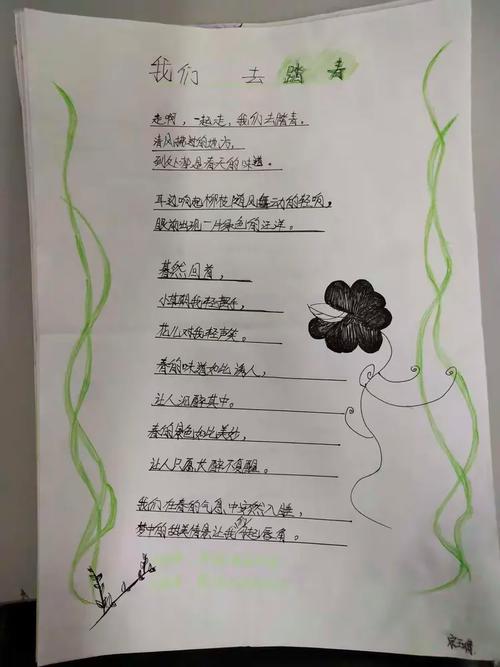 我们 去 踏春
走啊，一起走，我们去踏青。
清风拂过的地方，
到处都是春天的味道。
耳边响起柳枝随风舞动的轻响，
眼前出现一片绿色的汪洋。
蓦然回首，
小草朝我轻摆手，
花儿对我轻声笑。
春的味道如此诱人，
让人沉醉其中。
春的景色如此美妙，
让人只愿长醉不复醒。
我们在春的气息中安然入睡，
梦中的甜美情景让我们勾起唇角。